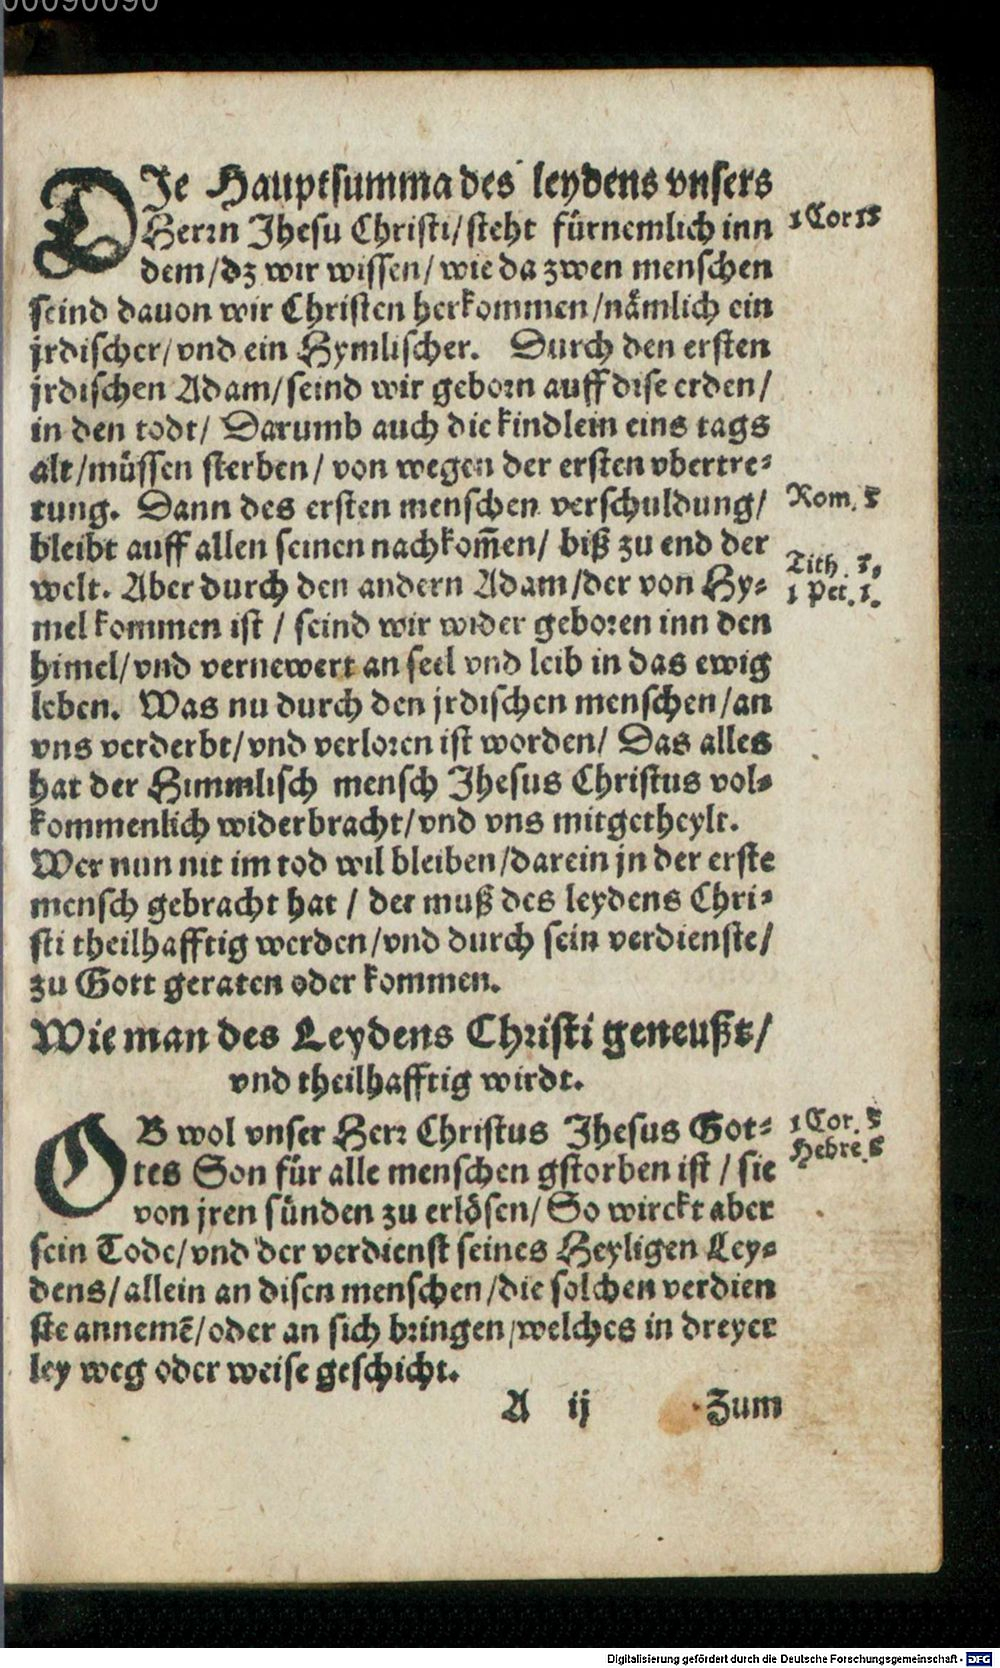 00090090
DIe Hauptsumma des leydens vnsers
Herrn Jhesu Christi/ steht fürnemlich inn
1 Cor 15
dem/ dz wir wissen/ wie da zwen menschen
seind dauon wir Christen herkommen/ nämlich ein
jrdischer/ vnd ein Hymlischer. Durch den ersten
jrdischen Adam/ seind wir geborn auff dise erden/
in den todt/ Darumb auch die kindlein eins tags
alt/ müssen sterben/ von wegen der ersten vbertre-
tung. Dann des ersten menschen verschuldung/
Rom. 5
bleibt auff allen seinen nachkom̄en/ biß zu end der
welt. Aber durch den andern Adam/ der von Hy-
Tith. 3,
1 Pet. 1.
mel kommen ist / seind wir wider geboren inn den
himel/ vnd vernewert an seel vnd leib in das ewig
leben. Was nu durch den jrdischen menschen/ an
vns verderbt/ vnd verloren ist worden/ Das alles
hat der Himmlisch mensch Jhesus Christus vol-
kommenlich widerbracht/ vnd vns mitgetheylt.
Wer nun nit im tod wil bleiben/ darein jn der erste
mensch gebracht hat / der muß des leydens Chri-
sti theilhafftig werden/ vnd durch sein verdienste/
zu Gott geraten oder kommen.
Wie man des Leydens Christi geneußt/
vnd theilhafftig wirdt.
OB wol vnser Herr Christus Jhesus Got-
1 Cor. 5
tes Son für alle menschen gstorben ist / sie
Hebre.
von jren sünden zu erlösen/ So wirckt aber
sein Tode/ vnd der verdienst seines Heyligen Ley-
dens/ allein an disen menschen/ die solchen verdien
ste annemē/ oder an sich bringen/ welches in dreyer
ley weg oder weise geschicht.
A ij Zum
Digitalisierung gefördert durch die Deutsche Forschungsgemeinschaft - DFG